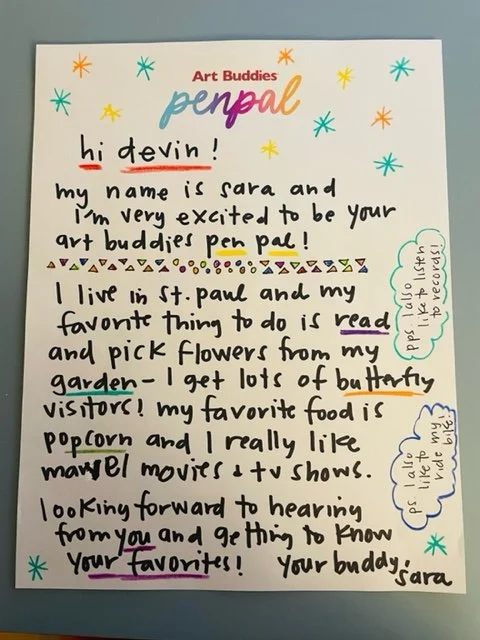 Art Buddies
penpal
hi devin!
my name is sara and
i'm very excited to be your
art buddies pen pal!
I live in St. paul and my
favorite thing to do is read
and pick flowers from my
garden - I get lots of butterfly
visitors! my favorite food is
popcorn and I really like
marvel movies + tv shows.
looking forward to hearing
from you and getting to know
your favorites! your buddy,
sara
ps. I also
like to
ride my
bike!
pps. I also
like to listen
to records!